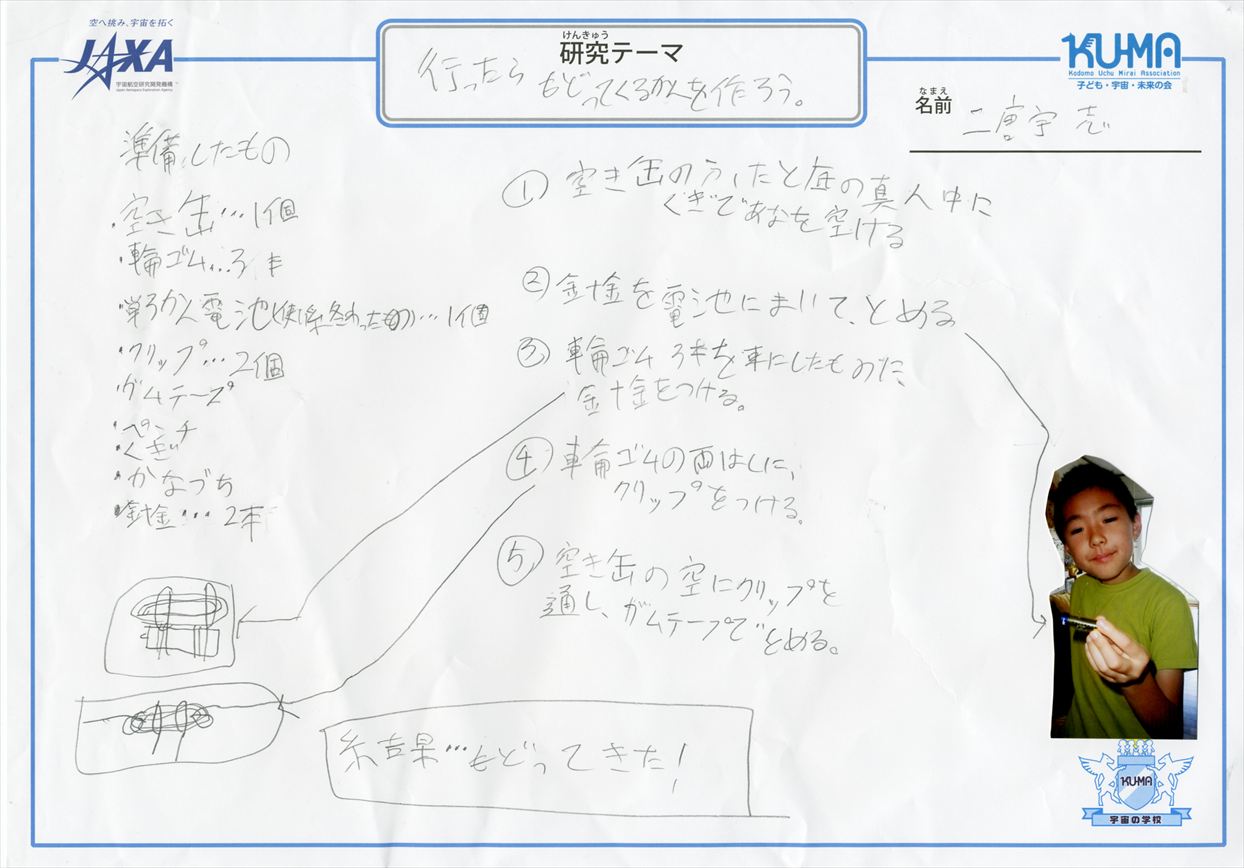 空へ挑み、宇宙を拓く
JAXA
宇宙航空研究開発機構
Japan Aerospace Exploration Agency
けんきゅう
研究テーマ
行ったらもどってくるかんを作ろう。
KU-MA
Kodomo Uchu Mirai Association
子ども・宇宙・未来の会
なまえ
名前
二宮宇志
準備したもの
・空き缶…1個
・輪ゴム…3本
・単3かん電池(使い終わったもの)…1個
・クリップ…2個
・ガムテープ
・ペンチ
・くぎ
・かなづち
・針金…2本
① 空き缶のふたと底の真ん中に
くぎであなを空ける
② 針金を電池にまいて、とめる
③ 輪ゴム3本を束にしたものに、
針金をつける。
④ 輪ゴムの両はしに、
クリップをつける。
⑤ 空き缶の空にクリップを
通し、ガムテープでとめる。
結果…もどってきた!
KU-MA
宇宙の学校